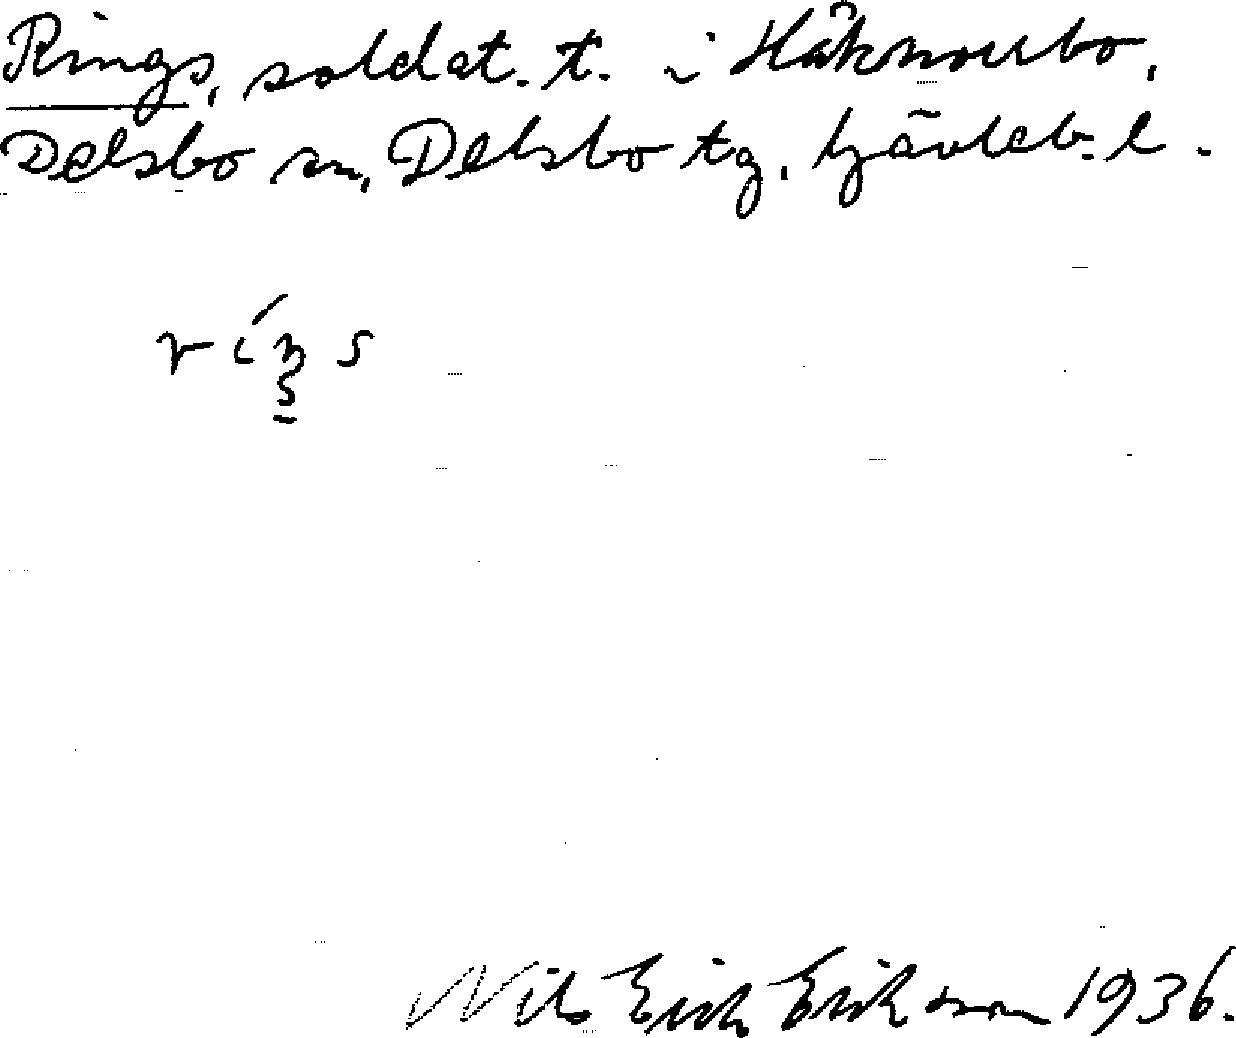 Rings, soldat.t. i Håknorrbo,
Delsbo sn, Delsbo tg, Gävleb. l.
ríŋs
Nils Erik Erikson 1936.